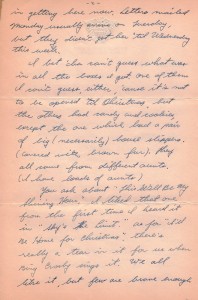 - 2 -
in getting here now. Letters mailed
Monday usually arrive on Tuesday,
but they didn't get here 'til Wednesday
this week.
I bet cha can't guess what was
in all the boxes I got. One of them
I can't guess, either, 'cause it's not
to be opened 'til Christmas, but
the others had candy and cookies
except the one which had a pair
of big (necessarily) house slippers.
(Covered with brown fur.) They
all came from different aunts.
(I have loads of aunts.)
You ask about "This Will Be My
Shining Hour." I liked that one
from the first time I heard it
in "Sky's the Limit." As for "I'll
Be Home for Christmas", there's
really a tear in it for me when
Bing Crosby sings it. We all
like it, but few are brave enough